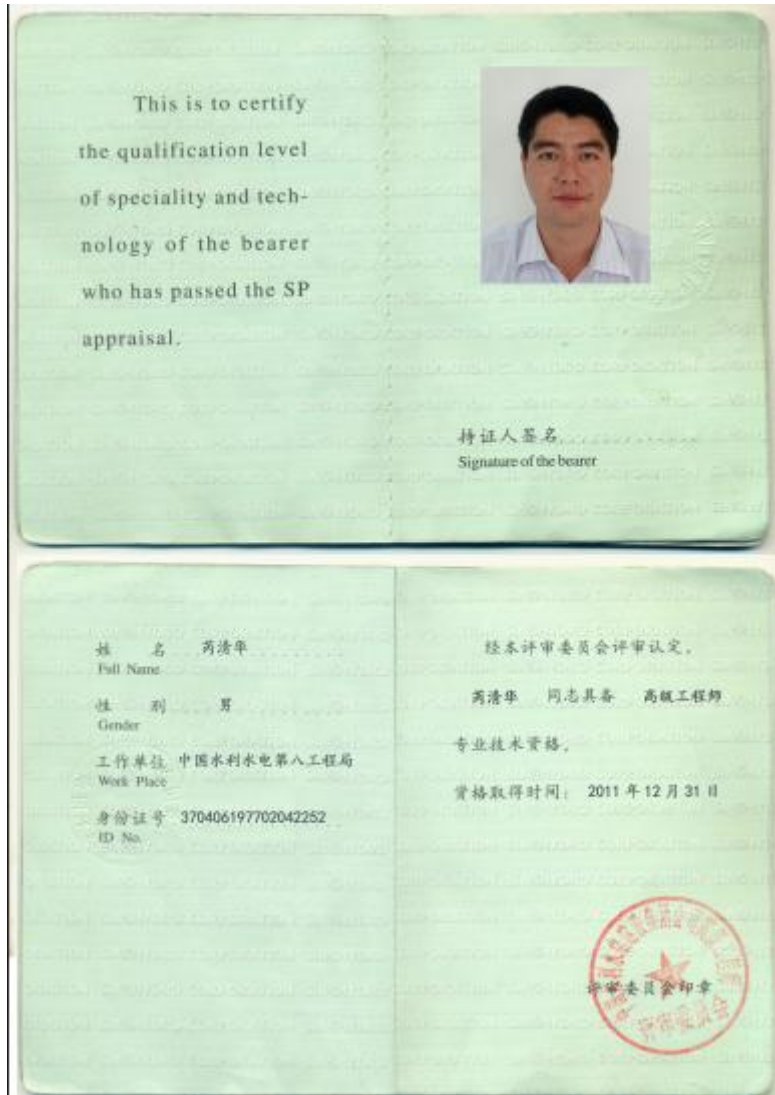 This is to certify
the qualification level
of speciality and tech-
nology of the bearer
who has passed the SP
appraisal.
持证人签名
Signature of the bearer
姓 名 芮清华
Full Name
性 别 男
Gender
工作单位 中国水利水电第八工程局
Work Place
身份证号 370406197702042252
ID No.
经本评审委员会评审认定，
芮清华 同志具备 高级工程师
专业技术资格。
资格取得时间： 2011年12月31日
评审委员会印章